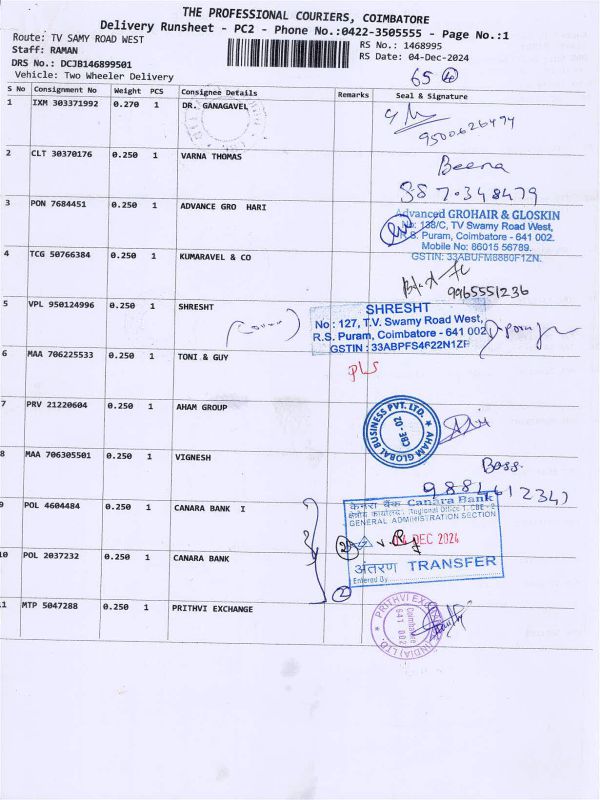 THE PROFESSIONAL COURIERS, COIMBATORE
Delivery Runsheet - PC2 - Phone No.:0422-3505555 - Page No.:1
Route: TV SAMY ROAD WEST
RS No.: 1468995
Staff: RAMAN
RS Date: 04-Dec-2024
DRS No.: DCJB146899501
Vehicle: Two Wheeler Delivery
65 4
S No Consignment No Weight PCS Consignee Details Remarks Seal & Signature
1 IXM 303371992 0.270 1 DR. GANAGAVEL
9500626494
2 CLT 30370176 0.250 1 VARNA THOMAS
Beena
3 PON 7684451 0.250 1 ADVANCE GRO HARI
Advanced GROHAIR & GLOSKIN
No: 138/C, TV Swamy Road West,
R.S. Puram, Coimbatore - 641 002.
Mobile No: 86015 56789.
GSTIN: 33ABUFM8880F1ZN.
4 TCG 50766384 0.250 1 KUMARAVEL & CO
9965551236
5 VPL 950124996 0.250 1 SHRESHT
SHRESHT
No : 127, T.V. Swamy Road West,
R.S. Puram, Coimbatore - 641 002
GSTIN : 33ABPFS4622N1ZF
6 MAA 706225533 0.250 1 TONI & GUY
7 PRV 21220604 0.250 1 AHAM GROUP
AHAM GLOBAL BUSINESS PVT. LTD.
CBE - 02
8 MAA 706305501 0.250 1 VIGNESH
Boss
9 POL 4604484 0.250 1 CANARA BANK I
केनरा बैंक Canara Bank
क्षेत्रीय कार्यालय, Regional Office 1, CBE - 2
GENERAL ADMINISTRATION SECTION
DEC 2024
10 POL 2037232 0.250 1 CANARA BANK
2
अंतरण TRANSFER
Entered By
2
11 MTP 5047288 0.250 1 PRITHVI EXCHANGE
PRITHVI EXCHANGE (INDIA) LTD.
Coimbatore
641 002